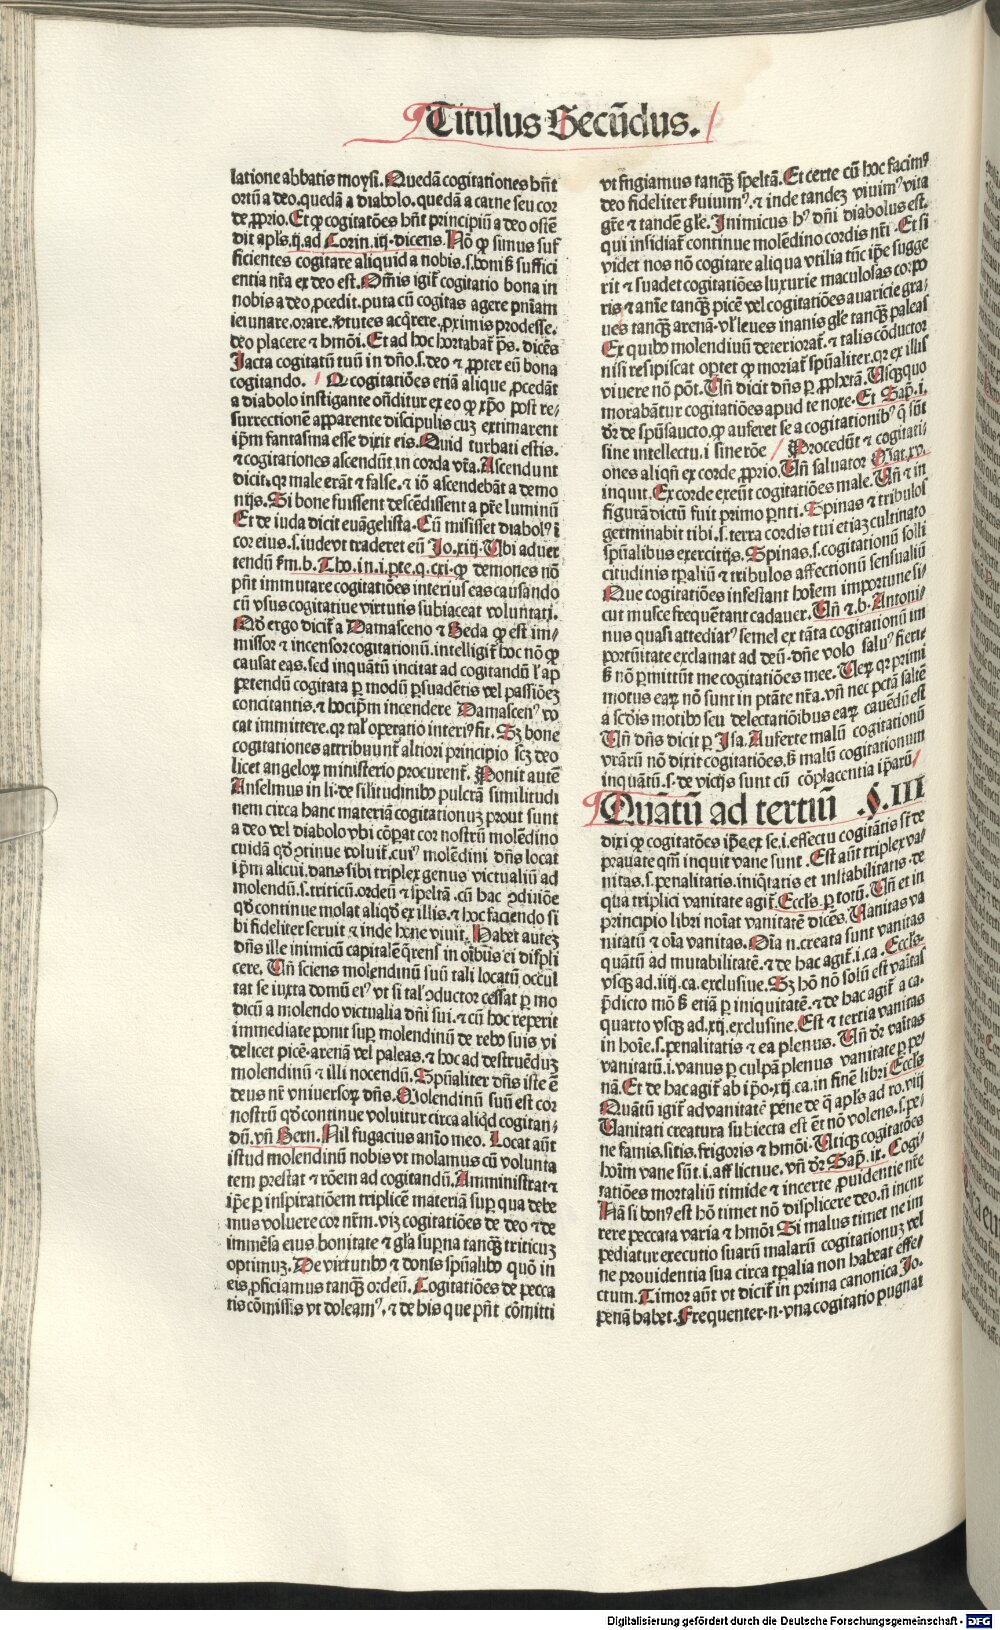 Titulus Secūdus.
latione abbatis moysi. Quedā cogitationes hn̄t
ortū a deo. quedā a diabolo. quedā a carne seu cor
de ꝓprio. Et ꝙ cogitatiōes hn̄t principiū a deo osten̄
dit apl̄s. ij. ad Corin. iij. dicens. Nō ꝙ simus suf
ficientes cogitare aliquid a nobis. s. boni sꝫ suffici
entia nr̄a ex deo est. Om̄is igit̄ cogitatio bona in
nobis a deo ꝓcedit. puta cū cogitas agere pn̄iam
ieiunare. orare. v̓tutes acq̄rere. ꝓximis prodesse.
deo placere ⁊ hmōi. Et ad hoc hortabat̄ ps̄. dicēs
Iacta cogitatū tuū in dn̄o. s. deo ⁊ ꝓpter eū bona
cogitando. Qꝙ cogitatiōes etiā alique ꝓcedāt
a diabolo instigante on̄ditur ex eo ꝙ xp̄o post re/
surrectionē apparente discipulis cuꝫ extimarent
ip̄m fantasma esse dixit eis. Quid turbati estis.
⁊ cogitationes ascendūt in corda vr̄a. Ascendunt
dicit. qꝛ male erāt ⁊ false. ⁊ iō ascendebāt a demo
nijs. Si bone fuissent descēdissent a pr̄e luminū
Et de iuda dicit euāgelista. Cū misisset diabolꝰ ī
cor eius. s. iude vt traderet eū Io. xiij. Ubi aduer
tendū s̄m. b. Tho. in. i. ꝑte. q. cxi. ꝙ demones nō
pn̄t immutare cogitatiōes interius eas causando
cū vsus cogitatiue virtutis subiaceat voluntati.
Qd̓ ergo dicit̄ a Damasceno ⁊ Beda ꝙ est im/
missor ⁊ incensor cogitationū. intelligit̄ hoc nō ꝙ
causat eas. sed inquātū incitat ad cogitandū l̓ ap
petendū cogitata ꝑ modū ꝑsuadētis vel passiōeꝫ
concitantis. ⁊ hoc ip̄m incendere Damascenꝰ vo
cat immittere. qꝛ tal̓ operatio interiꝰ fit. Sꝫ bone
cogitationes attribuunt̄ altiori principio scꝫ deo
licet angeloꝝ ministerio procurent̄. Ponit autē
Anselmus in li. de silitudinibꝰ pulcrā similitudi
nem circa hanc materiā cogitationuꝫ prout sunt
a deo vel diabolo vbi cōpat cor nostrū molēdino
cuidā qd̓ ꝯtinue voluit̄. cuiꝰ molēdini dn̄s locat
ip̄m alicui. dans sibi triplex genus victualiū ad
molendū. s. triticū. ordeū ⁊ speltā. cū hac ꝯditiōe
qd̓ continue molat aliqd̓ ex illis. ⁊ hoc faciendo si
bi fideliter seruit ⁊ inde bene viuit. Habet auteꝫ
dn̄s ille inimicū capitalē q̄rens̄ in oībus ei displi
cere. Un̄ sciens molendinū suū tali locatū occul
tat se iuxta domū eiꝰ vt si tal̓ ꝯductor cessat ꝑ mo
dicū a molendo victualia dn̄i sui. ⁊ cū hoc reperit
immediate ponit suꝑ molendinū de rebꝰ suis vi
delicet picē. arenā vel paleas. ⁊ hoc ad destruēduꝫ
molendinū ⁊ illi nocendū. Spūaliter dn̄s iste ē
deus nr̄ vniuersoꝝ dn̄s. Molendinū suū est cor
nostrū qd̓ continue voluitur circa aliqd̓ cogitan/
dū. vn̄ Bern. Nil fugacius aīo meo. Locat aūt
istud molendinū nobis vt molamus cū volunta
tem prestat ⁊ rōem ad cogitandū. Amministrat ⁊
ip̄e ꝑ inspiratiōem triplicē materiā suꝑ qua debe
mus voluere cor nr̄m. viꝫ cogitatiōes de deo ⁊ de
immēsa eius bonitate ⁊ gl̄a suꝑna tanqꝫ triticuꝫ
optimuꝫ. De virtutibꝰ ⁊ donis spūalibꝰ quō in
eis ꝓficiamus tanqꝫ ordeū. Cogitatiōes de pecca
tis cōmissis vt doleamꝰ, ⁊ de his que pn̄t cōmitti
vt fugiamus tanqꝫ speltā. Et certe cū hoc facimꝰ
deo fideliter s̓uiuimꝰ. ⁊ inde tandeꝫ viuimꝰ vita
gr̄e ⁊ tandē gl̄e. Inimicus hꝰ dn̄i diabolus est.
qui insidiat̄ continue molēdino cordis nr̄i. Et si
videt nos nō cogitare aliqua vtilia tūc ip̄e sugge
rit ⁊ suadet cogitatiōes luxurie maculosas corꝑo
ris ⁊ anīe tanqꝫ picē vel cogitatiōes auaricie gra/
ues tanqꝫ arenā. vl̓ leues inanis gl̄e tanqꝫ paleas
Ex quibꝰ molendinū deteriorat̄. ⁊ talis cōductor
nisi resipiscat oꝑtet ꝙ moriat̄ spūaliter. qꝛ ex illis
viuere nō pōt. Un̄ dicit dn̄s ꝑ ꝓphetā. Usqꝫquo
morabūtur cogitatiōes apud te noxe. Et Sap. i.
dr̄ de spūsancto. ꝙ auferet se a cogitationibꝰ q̄ sūt
sine intellectu. i. sine rōe Procedūt ⁊ cogitati/
ones aliqn̄ ex corde ꝓprio. Un̄ saluator Mat. xv.
inquit. Ex corde exeūt cogitatiōes male. Un̄ ⁊ in
figurā dictū fuit primo ꝑenti. Spinas ⁊ tribulos
germinabit tibi. s. terra cordis tui etiaꝫ cultinato
spūalibus exercitijs. Spinas. s. cogitationū solli
citudinis tꝑaliū ⁊ tribulos affectionū sensualiū
Que cogitatiōes infestant hoīem importune si/
cut musce frequētant cadauer. Un̄ ⁊. b. Antoni/
nus quasi attediatꝰ semel ex tāta cogitationū im
portūitate exclamat ad deū. dn̄e volo saluꝰ fieri
sꝫ nō ꝑmittūt me cogitatiōes mee. Ueꝝ qꝛ primi
motus eaꝝ nō sunt in ptāte nr̄a. vn̄ nec pctā saltē
a scd̓is motibꝰ seu delectatiōibus eaꝝ cauēdū est
Un̄ dn̄s dicit ꝑ Isa. Auferte malū cogitationū
vrārū nō dixit cogitatiōes. sꝫ malū cogitationum
inquātū. s. de victijs sunt cū cōplacentia ip̄arū
Quātū ad tertiū .§. III
dixi ꝙ cogitatōes ip̄e. ex se. i. effectu cogitātis sr̄ de
prauate qm̄ inquit vane sunt. Est aūt triplex va/
nitas. s. penalitatis. iniq̄tatis et instabilitatis. de
qua triplici vanitate agit̄. Eccl̄s. ꝑ totū. Un̄ et in
principio libri noīat vanitatē dicēs. Uanitas va
nitatū ⁊ oīa vanitas. Oīa n. creata sunt vanitas
quātū ad mutabilitatē. ⁊ de hac agit̄. i. ca. Eccl̄s.
vsqꝫ ad. iiij. ca. exclusiue. Sꝫ hō nō solū est vāitas
p̄dicto mō sꝫ etiā ꝑ iniquitatē. ⁊ de hac agit̄ a ca.
quarto vsqꝫ ad. xij. exclusiue. Est ⁊ tertia vanitas
in hoīe. s. penalitatis ⁊ ea plenus. Un̄ dr̄ vāitas
vanitatū. i. vanus ꝑ culpā plenus vanitate ꝑ pe/
nā. Et de hac agit̄ ab ip̄o. xij. ca. in finē libri Eccl̄s
Quātū igit̄ ad vanitatē pene de q̄ apl̄s ad ro. viij
Uanitati creatura subiecta est ēt nō volens. s. pe/
ne famis. sitis. frigoris ⁊ hmōi. Utiqꝫ cogitatōes
hoīm vane sūt. i. afflictiue. vn̄ dr̄ Sap. ix. Cogi/
tatiōes mortaliū timide ⁊ incerte ꝓuidentie nr̄e
Nā si bonꝰ est hō timet nō displicere deo. n̄ incur
rere peccata varia ⁊ hmōi Si malus timet ne im
pediatur executio suarū malarū cogitationuꝫ vel
ne prouidentia sua circa tꝑalia non habeat effe/
ctum. Timor aūt vt dicit̄ in prima canonica Jo.
penā habet. Frequenter. n. vna cogitatio pugnat
Digitalisierung gefördert durch die Deutsche Forschungsgemeinschaft - DFG